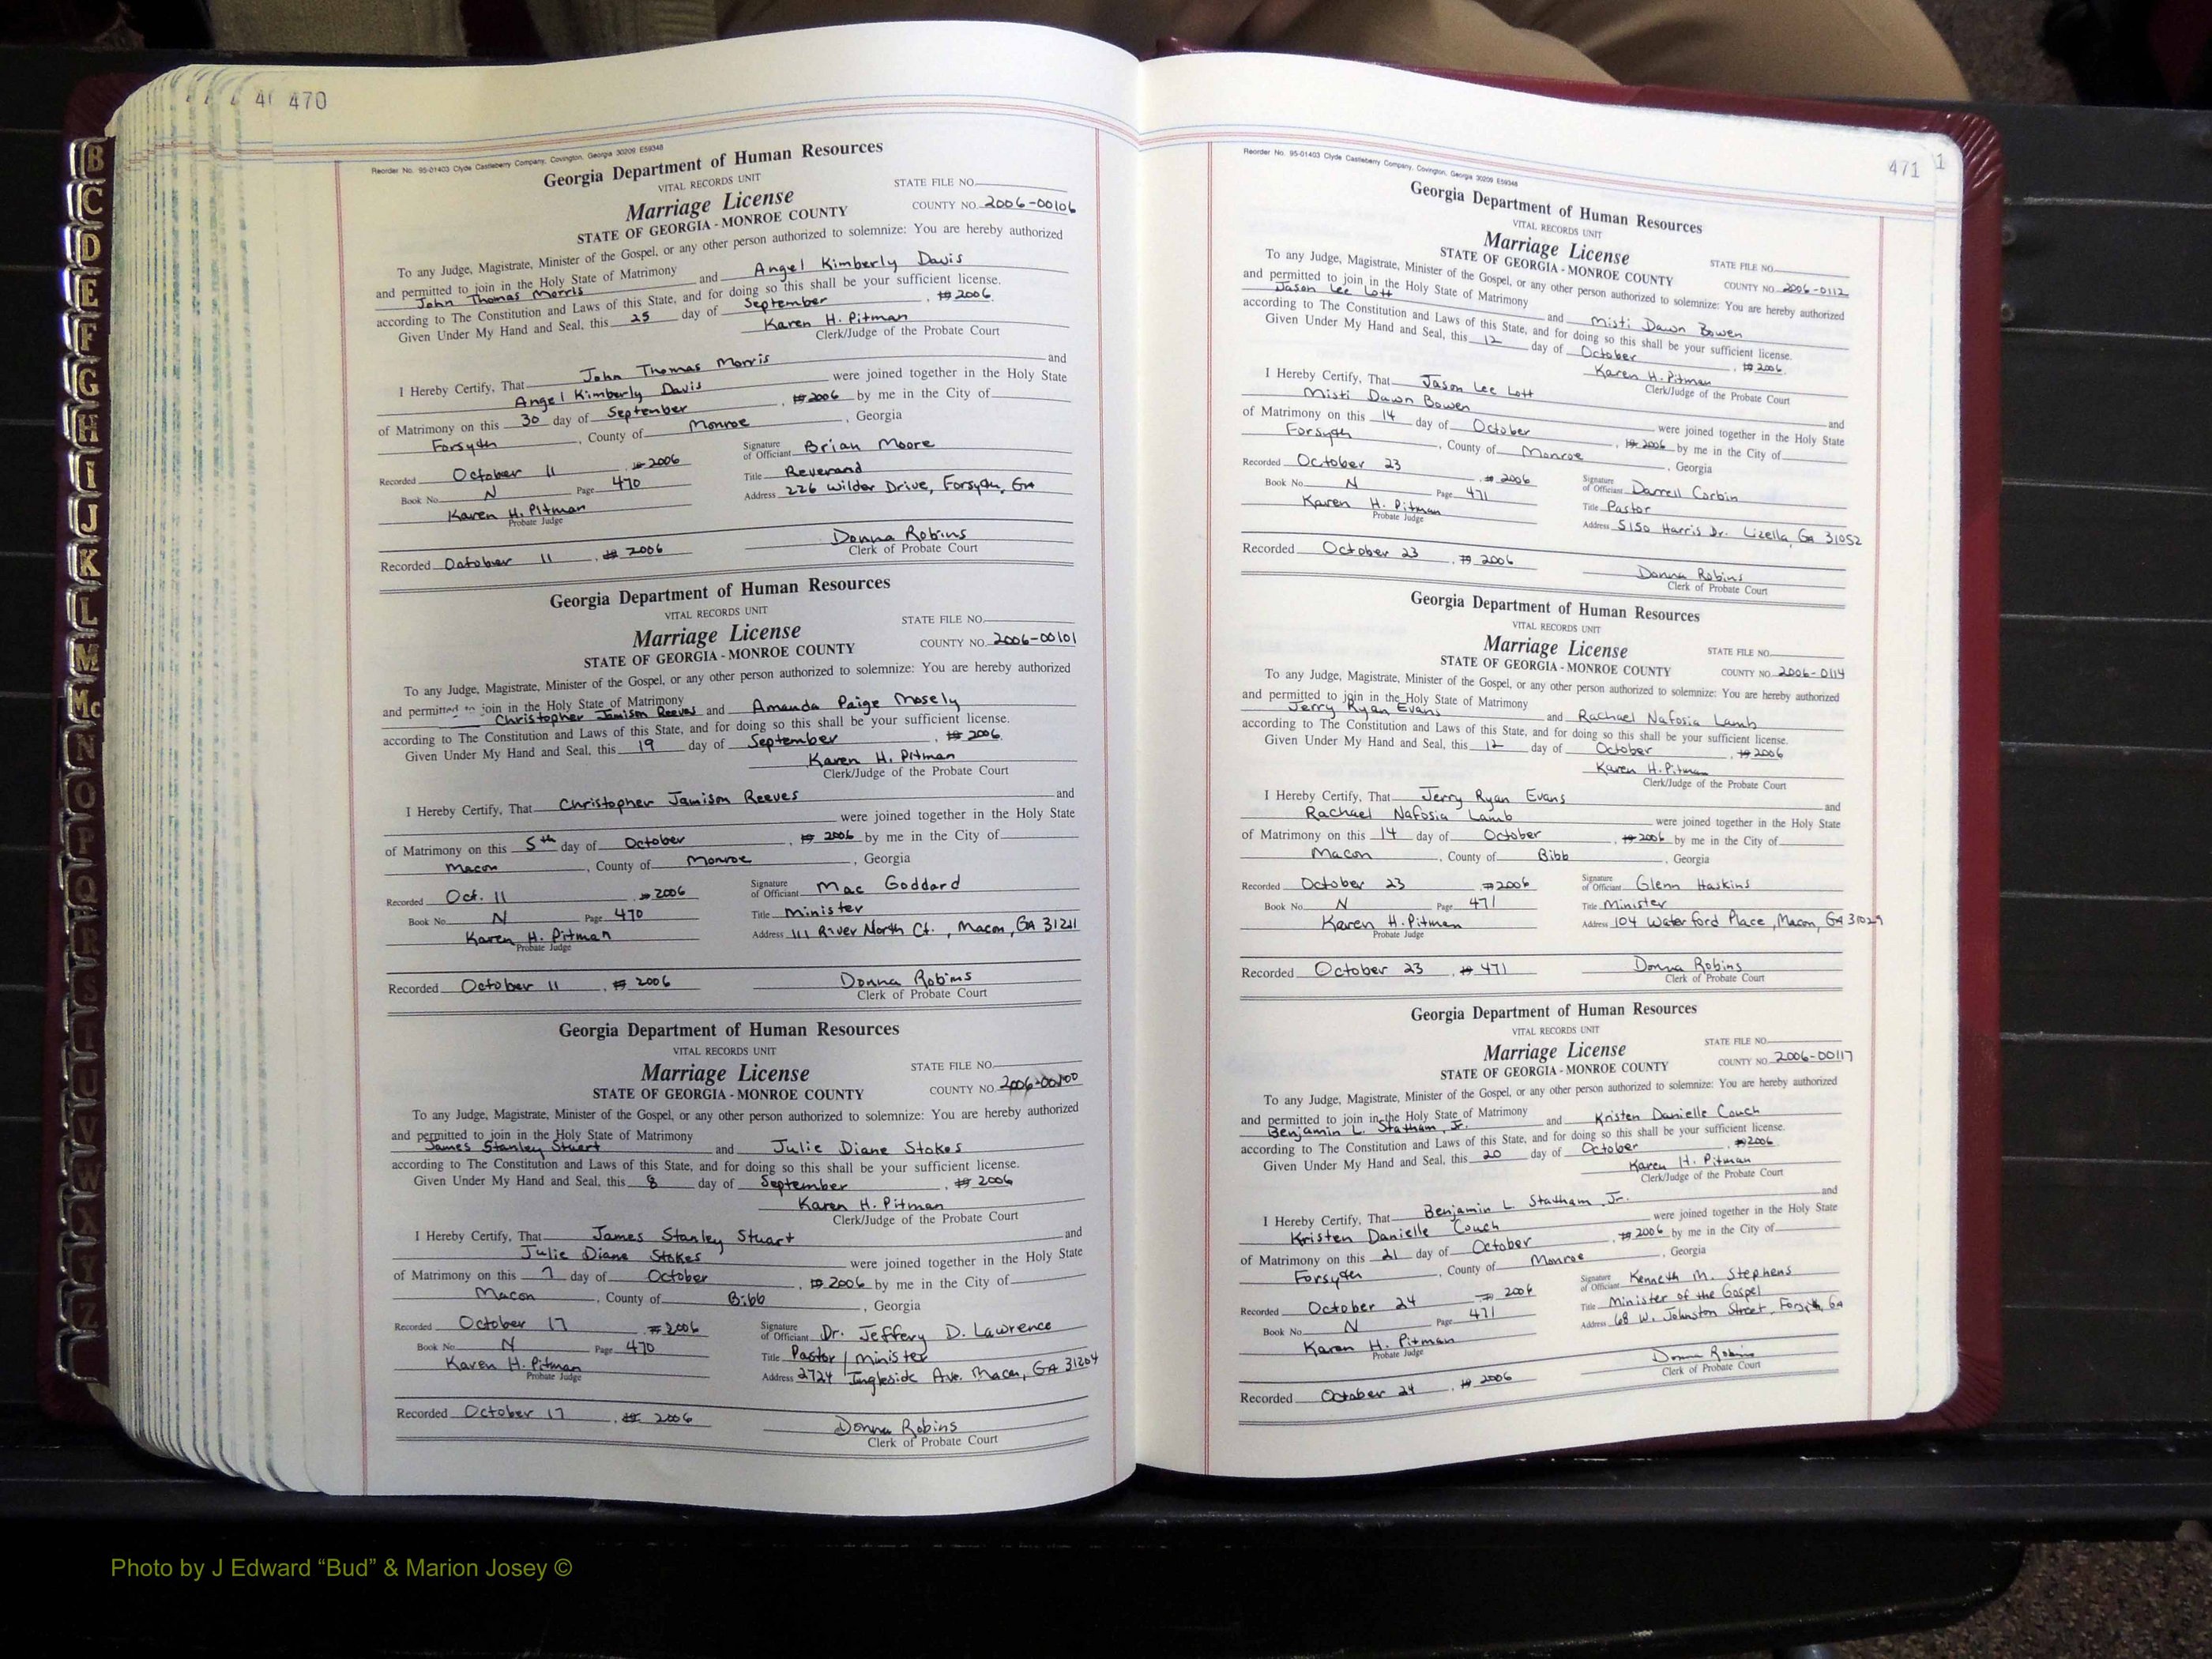 470
Reorder No. 95-01403 Clyde Castleberry Company, Covington, Georgia 30209 E59348
Georgia Department of Human Resources
VITAL RECORDS UNIT
Marriage License
STATE OF GEORGIA - MONROE COUNTY
STATE FILE NO.
COUNTY NO. 2006-00106
To any Judge, Magistrate, Minister of the Gospel, or any other person authorized to solemnize: You are hereby authorized
and permitted to join in the Holy State of Matrimony
John Thomas Morris and Angel Kimberly Davis
according to The Constitution and Laws of this State, and for doing so this shall be your sufficient license.
Given Under My Hand and Seal, this 25 day of September, 2006.
Karen H. Pitman
Clerk/Judge of the Probate Court
I Hereby Certify, That John Thomas Morris and
Angel Kimberly Davis were joined together in the Holy State
of Matrimony on this 30 day of September, 2006 by me in the City of
Forsyth, County of Monroe, Georgia
Recorded October 11, 2006
Book No. N Page 470
Karen H. Pitman
Probate Judge
Signature of Officiant Brian Moore
Title Reverand
Address 226 Wilder Drive, Forsyth, GA
Recorded October 11, 2006
Donna Robins
Clerk of Probate Court
Georgia Department of Human Resources
VITAL RECORDS UNIT
Marriage License
STATE OF GEORGIA - MONROE COUNTY
STATE FILE NO.
COUNTY NO. 2006-00101
To any Judge, Magistrate, Minister of the Gospel, or any other person authorized to solemnize: You are hereby authorized
and permitted to join in the Holy State of Matrimony
Christopher Jamison Reeves and Amanda Paige Mosely
according to The Constitution and Laws of this State, and for doing so this shall be your sufficient license.
Given Under My Hand and Seal, this 19 day of September, 2006.
Karen H. Pitman
Clerk/Judge of the Probate Court
I Hereby Certify, That Christopher Jamison Reeves and
were joined together in the Holy State
of Matrimony on this 5th day of October, 2006 by me in the City of
Macon, County of Monroe, Georgia
Recorded Oct. 11, 2006
Book No. N Page 470
Karen H. Pitman
Probate Judge
Signature of Officiant Mac Goddard
Title Minister
Address 111 River North Ct., Macon, GA 31211
Recorded October 11, 2006
Donna Robins
Clerk of Probate Court
Georgia Department of Human Resources
VITAL RECORDS UNIT
Marriage License
STATE OF GEORGIA - MONROE COUNTY
STATE FILE NO.
COUNTY NO. 2006-00100
To any Judge, Magistrate, Minister of the Gospel, or any other person authorized to solemnize: You are hereby authorized
and permitted to join in the Holy State of Matrimony
James Stanley Stuart and Julie Diane Stokes
according to The Constitution and Laws of this State, and for doing so this shall be your sufficient license.
Given Under My Hand and Seal, this 8 day of September, 2006
Karen H. Pitman
Clerk/Judge of the Probate Court
I Hereby Certify, That James Stanley Stuart and
Julie Diane Stokes were joined together in the Holy State
of Matrimony on this 7 day of October, 2006 by me in the City of
Macon, County of Bibb, Georgia
Recorded October 17, 2006
Book No. N Page 470
Karen H. Pitman
Probate Judge
Signature of Officiant Dr. Jeffery D. Lawrence
Title Pastor / Minister
Address 2724 Ingleside Ave. Macon, GA 31204
Recorded October 17, 2006
Donna Robins
Clerk of Probate Court
471
Reorder No. 95-01403 Clyde Castleberry Company, Covington, Georgia 30209 E59348
Georgia Department of Human Resources
VITAL RECORDS UNIT
Marriage License
STATE OF GEORGIA - MONROE COUNTY
STATE FILE NO.
COUNTY NO. 2006-0112
To any Judge, Magistrate, Minister of the Gospel, or any other person authorized to solemnize: You are hereby authorized
and permitted to join in the Holy State of Matrimony
Jason Lee Lott and Misti Dawn Bowen
according to The Constitution and Laws of this State, and for doing so this shall be your sufficient license.
Given Under My Hand and Seal, this 12 day of October, 2006.
Karen H. Pitman
Clerk/Judge of the Probate Court
I Hereby Certify, That Jason Lee Lott and
Misti Dawn Bowen were joined together in the Holy State
of Matrimony on this 14 day of October, 2006 by me in the City of
Forsyth, County of Monroe, Georgia
Recorded October 23, 2006
Book No. N Page 471
Karen H. Pitman
Probate Judge
Signature of Officiant Darrell Corbin
Title Pastor
Address 5150 Harris Dr. Lizella, GA 31052
Recorded October 23, 2006
Donna Robins
Clerk of Probate Court
Georgia Department of Human Resources
VITAL RECORDS UNIT
Marriage License
STATE OF GEORGIA - MONROE COUNTY
STATE FILE NO.
COUNTY NO. 2006-0114
To any Judge, Magistrate, Minister of the Gospel, or any other person authorized to solemnize: You are hereby authorized
and permitted to join in the Holy State of Matrimony
Jerry Ryan Evans and Rachael Nafosia Lamb
according to The Constitution and Laws of this State, and for doing so this shall be your sufficient license.
Given Under My Hand and Seal, this 12 day of October, 2006
Karen H. Pitman
Clerk/Judge of the Probate Court
I Hereby Certify, That Jerry Ryan Evans and
Rachael Nafosia Lamb were joined together in the Holy State
of Matrimony on this 14 day of October, 2006 by me in the City of
Macon, County of Bibb, Georgia
Recorded October 23, 2006
Book No. N Page 471
Karen H. Pitman
Probate Judge
Signature of Officiant Glenn Haskins
Title Minister
Address 104 Waterford Place, Macon, GA 31029
Recorded October 23, 471
Donna Robins
Clerk of Probate Court
Georgia Department of Human Resources
VITAL RECORDS UNIT
Marriage License
STATE OF GEORGIA - MONROE COUNTY
STATE FILE NO.
COUNTY NO. 2006-00117
To any Judge, Magistrate, Minister of the Gospel, or any other person authorized to solemnize: You are hereby authorized
and permitted to join in the Holy State of Matrimony
Benjamin L. Statham, Jr. and Kristen Danielle Couch
according to The Constitution and Laws of this State, and for doing so this shall be your sufficient license.
Given Under My Hand and Seal, this 20 day of October, 2006
Karen H. Pitman
Clerk/Judge of the Probate Court
I Hereby Certify, That Benjamin L. Statham, Jr. and
Kristen Danielle Couch were joined together in the Holy State
of Matrimony on this 21 day of October, 2006 by me in the City of
Forsyth, County of Monroe, Georgia
Recorded October 24, 2006
Book No. N Page 471
Karen H. Pitman
Probate Judge
Signature of Officiant Kenneth M. Stephens
Title Minister of the Gospel
Address 68 W. Johnston Street, Forsyth, GA
Recorded October 24, 2006
Donna Robins
Clerk of Probate Court
B
C
D
E
F
G
H
I
J
K
L
M
Mc
N
O
P
Q
R
S
T
U
V
W
X
Y
Z
Photo by J Edward “Bud” & Marion Josey ©